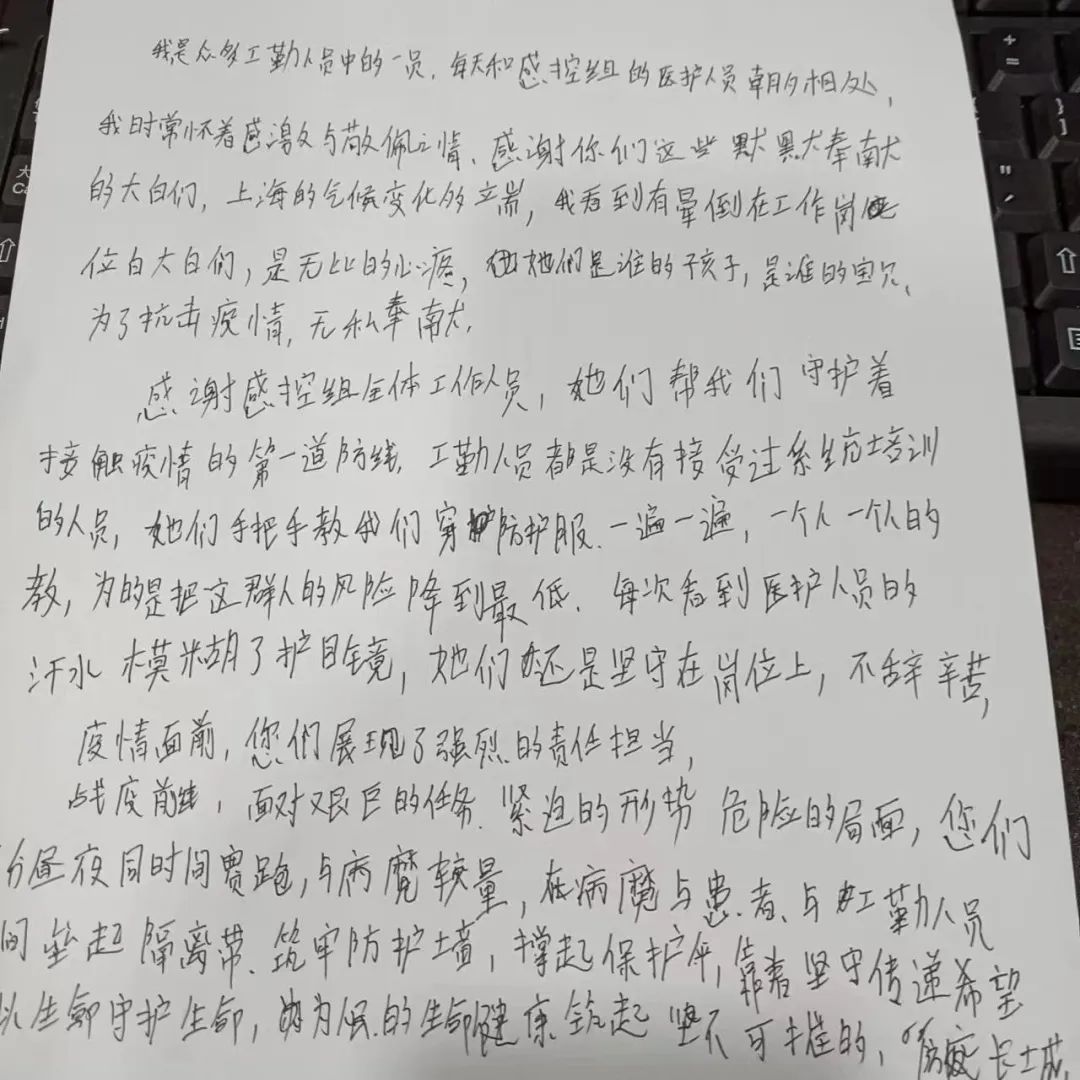 我是众多工勤人员中的一员，每天和感控组的医护人员朝夕相处，
我时常怀着感激与敬佩之情、感谢你们这些默默奉献
的大白们，上海的气候变化多端，我看到有晕倒在工作岗
位白大白们，是无比的心疼，她们是谁的孩子，是谁的宝贝、
为了抗击疫情，无私奉献，
感谢感控组全体工作人员，她们帮我们守护着
接触疫情的第一道防线，工勤人员都是没有接受过系统培训
的人员，她们手把手教我们穿防护服、一遍一遍，一个人一个人的
教，为的是把这群人的风险降到最低、每次看到医护人员的
汗水模糊了护目镜，她们还是坚守在岗位上，不辞辛苦，
疫情面前，您们展现了强烈的责任担当，
战疫前线，面对艰巨的任务、紧迫的形势危险的局面，您们
分昼夜同时间赛跑，与病魔较量，在病魔与患者、与工勤人员
间垒起隔离带、筑牢防护墙，撑起保护伞，靠着坚守传递希望
以生命守护生命，为人民的生命健康筑起坚不可摧的，“防疫长城，